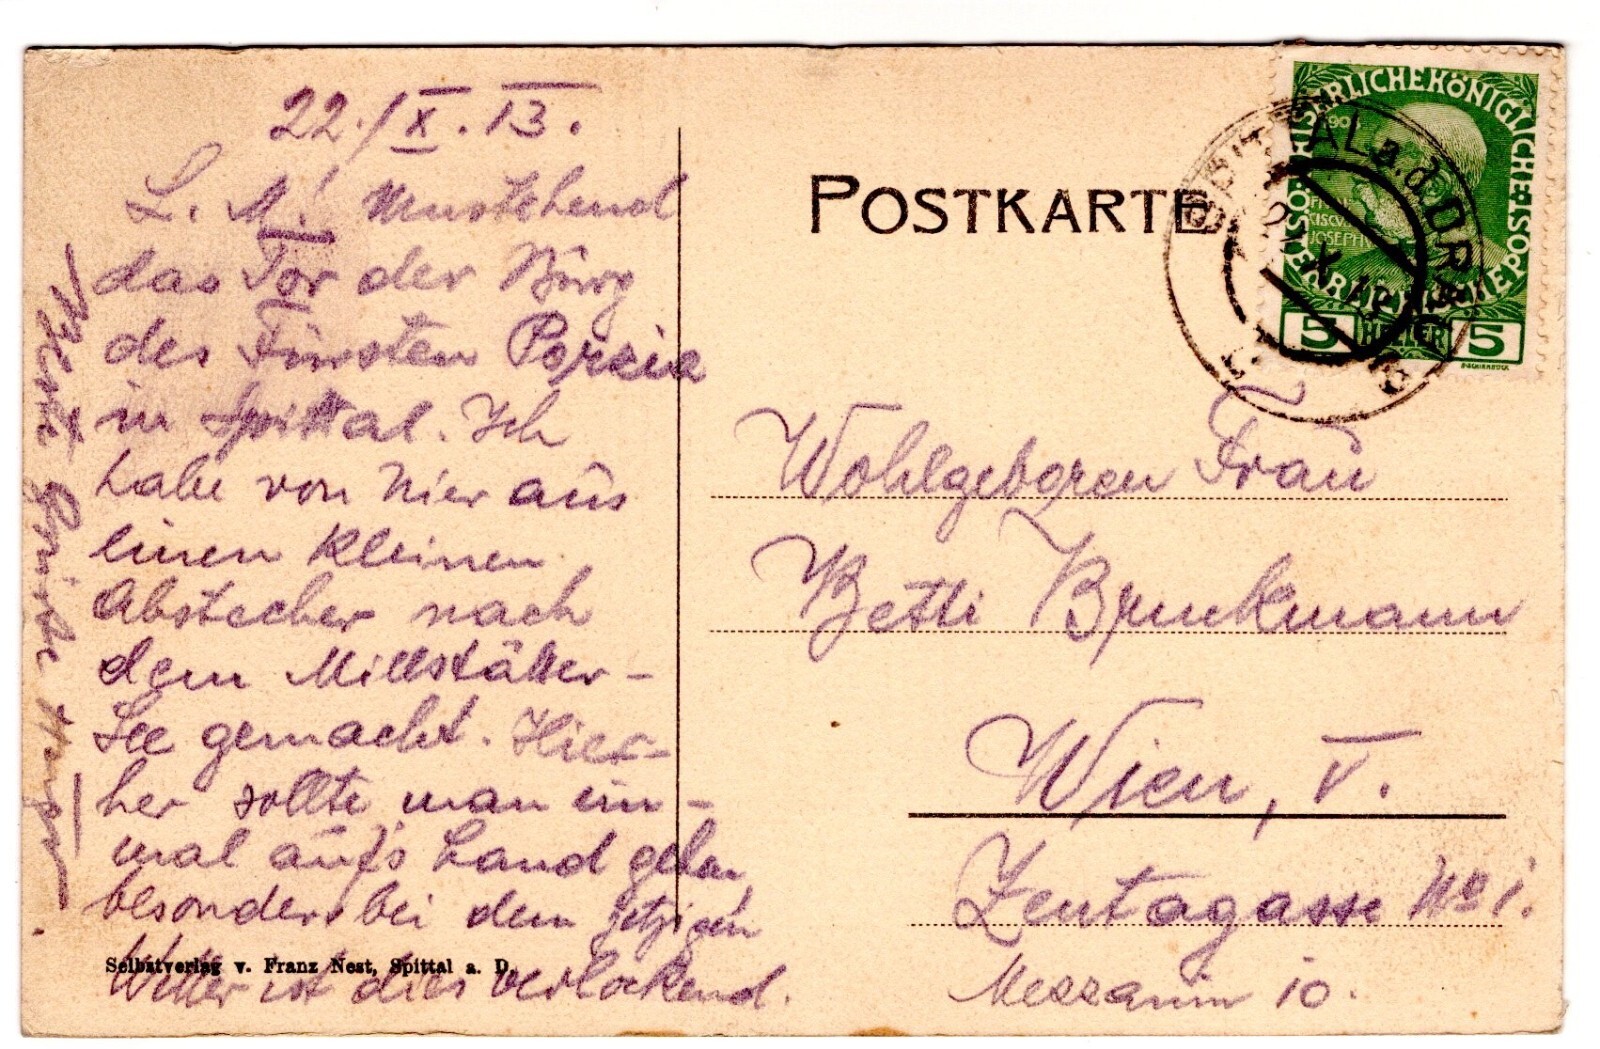 22./X. 13.
L. M.! Umstehend
das Tor der Burg
des Fürsten Porzia
in Spittal. Ich
habe von hier aus
einen kleinen
Abstecher nach
dem Millstätter-
See gemacht. Hier-
her sollte man ein-
mal aufs Land gehen
besonders bei dem jetzigen
Wetter ist dies verlockend.
Herzl. Grüße
Selbstverlag v. Franz Nest, Spittal a. D.
POSTKARTE
KAISERLICHE KÖNIGLICHE ÖSTERREICHISCHE POST
FRANCISCVS JOSEPHVS
5 HELLER 5
SPITTAL a. d. DRAU
Wohlgeboren Frau
Betti Bruckmann
Wien, V.
Zentagasse No 1.
Mezzanin 10.